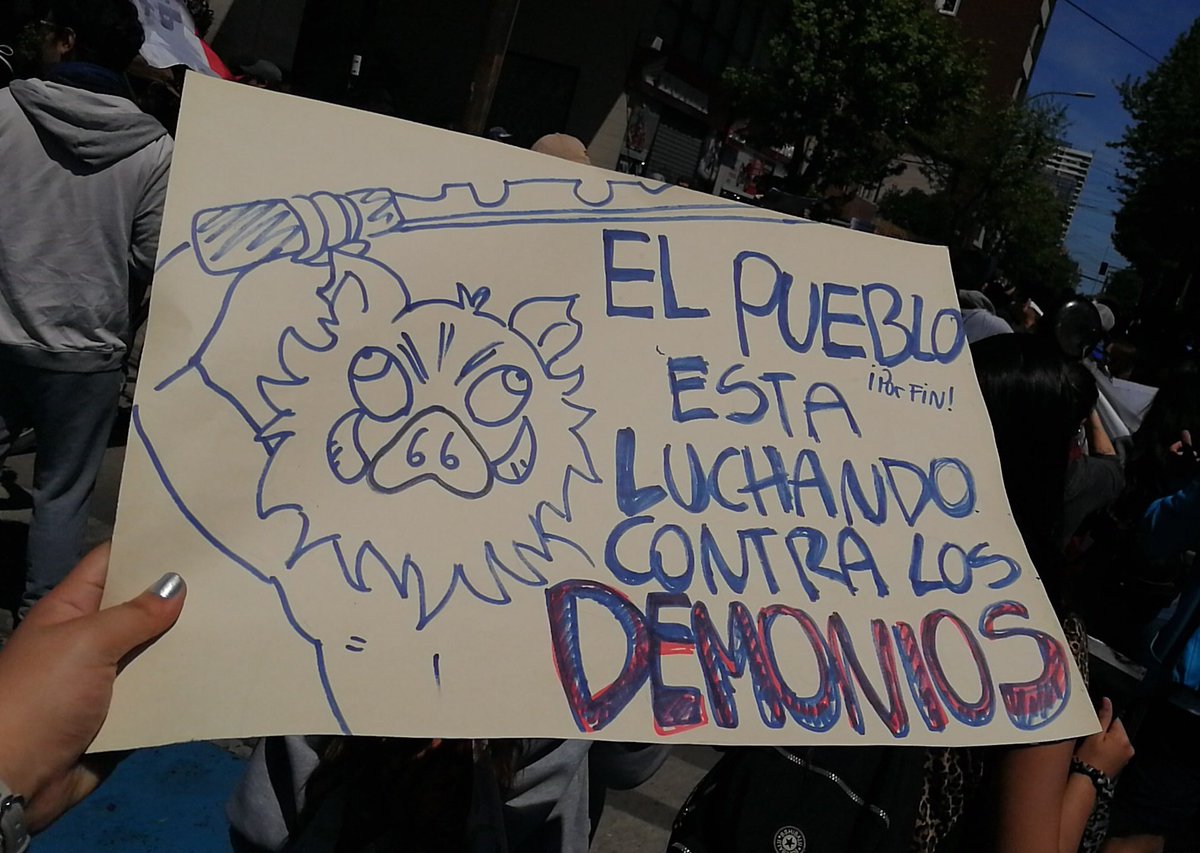 EL PUEBLO
¡POR FIN!
ESTA
LUCHANDO
CONTRA LOS
DEMONIOS